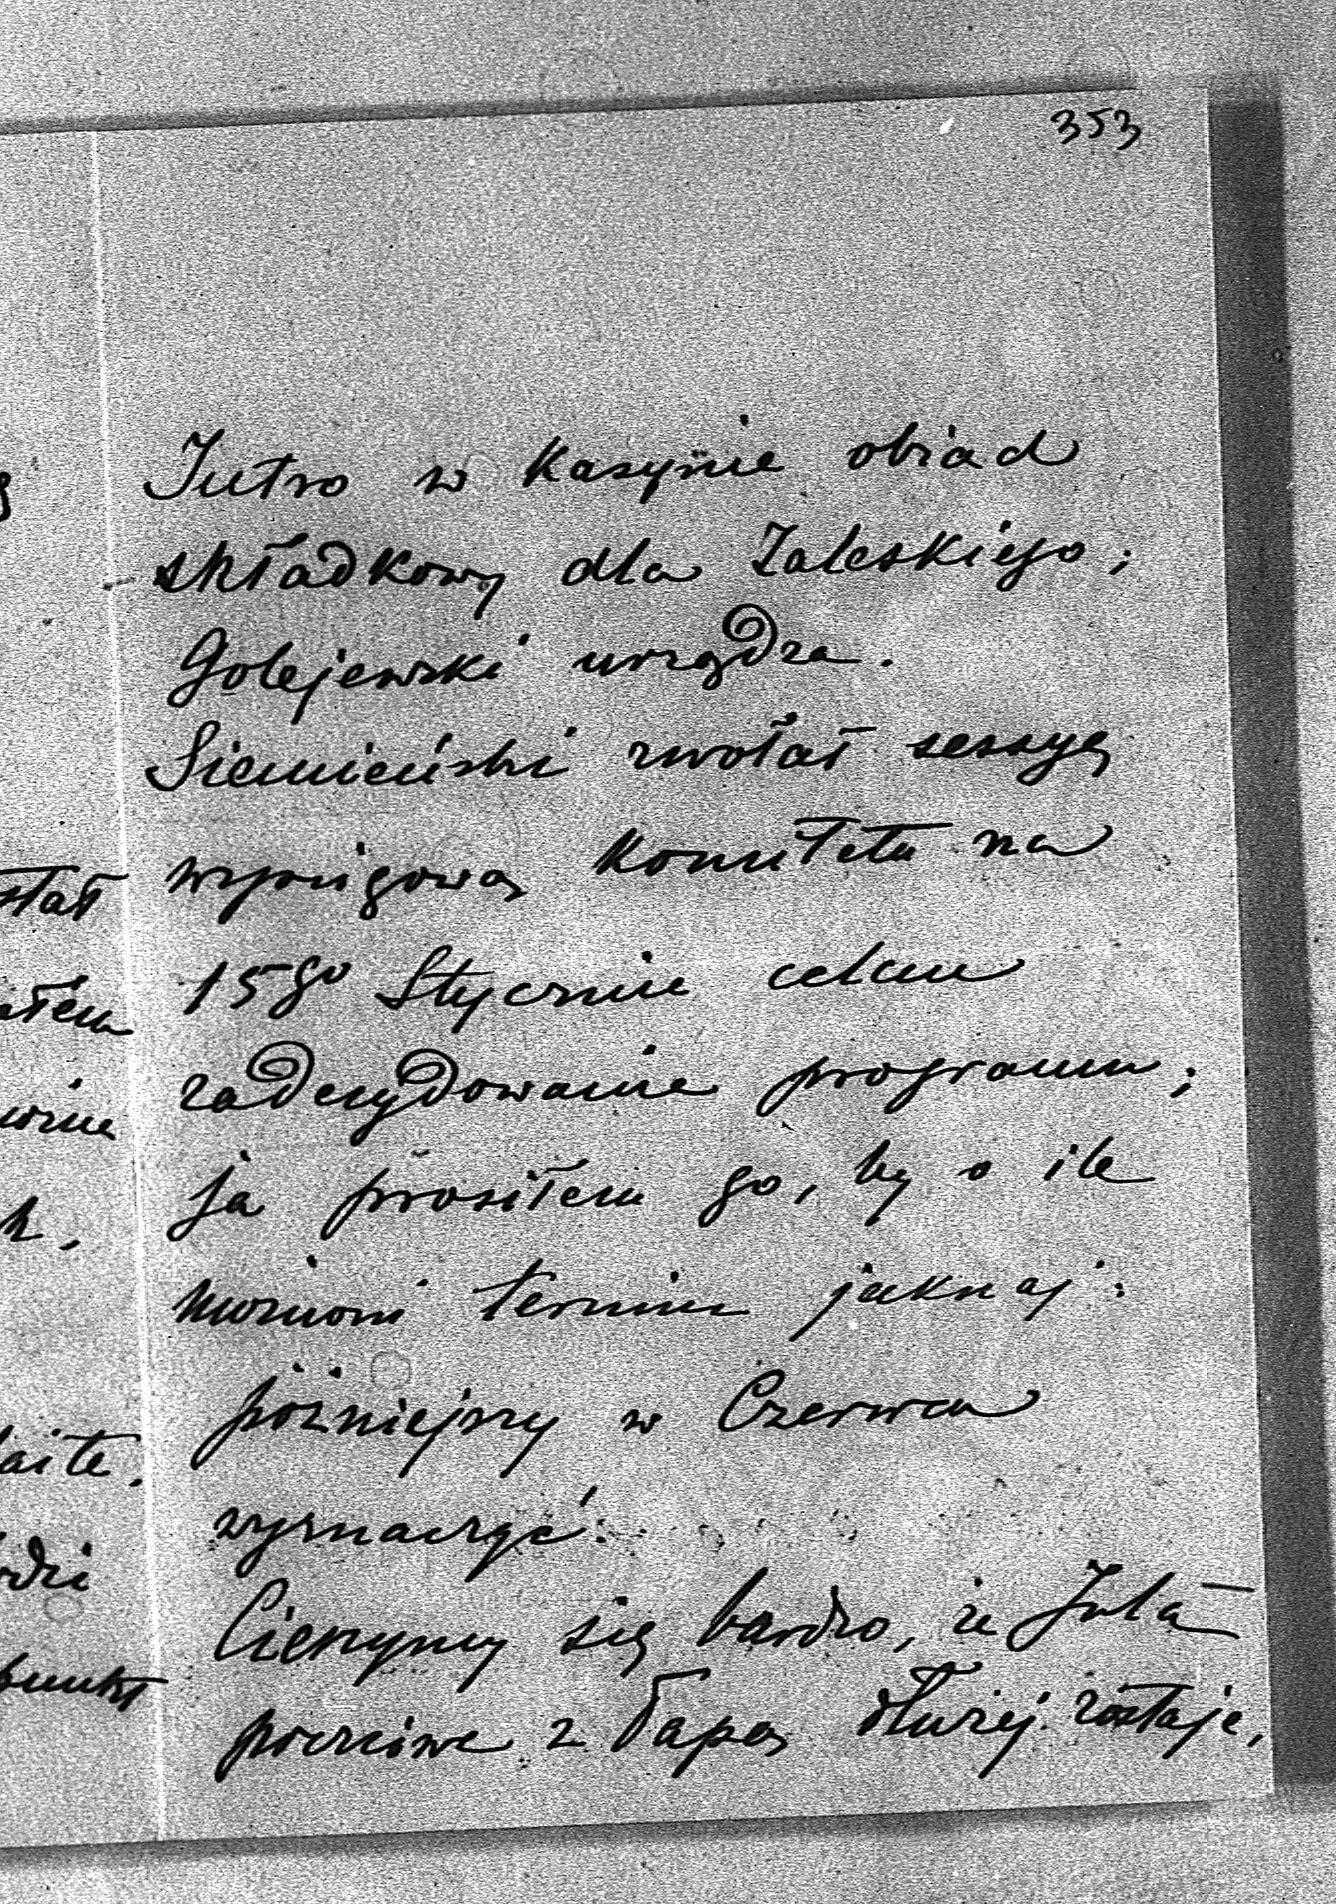 353
Jutro w Kasynie obiad
składkowy dla Zaleskiego;
Golejewski urządza.
Siemieński zwołał sessyę
wyścigową Komitetu na
15go Stycznia celem
zadecydowania programu;
ja prosiłem go, by o ile
możności termin jaknaj:
późniejszy w Czerwcu
wyznaczyć.
Cieszymy się bardzo, że Jula
poczciwa z Papą dłużej zostaje,